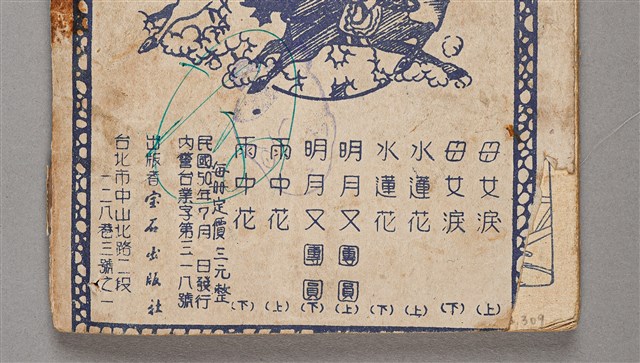 母女淚(上)
母女淚(下)
水蓮花(上)
水蓮花(下)
明月又團圓(上)
明月又團圓(下)
雨中花(上)
雨中花(下)
每冊定價三元整
民國50年7月 日發行
內警台業字第三一八號
出版者 宝石出版社
台北市中山北路二段
一二八巷三號之一
309